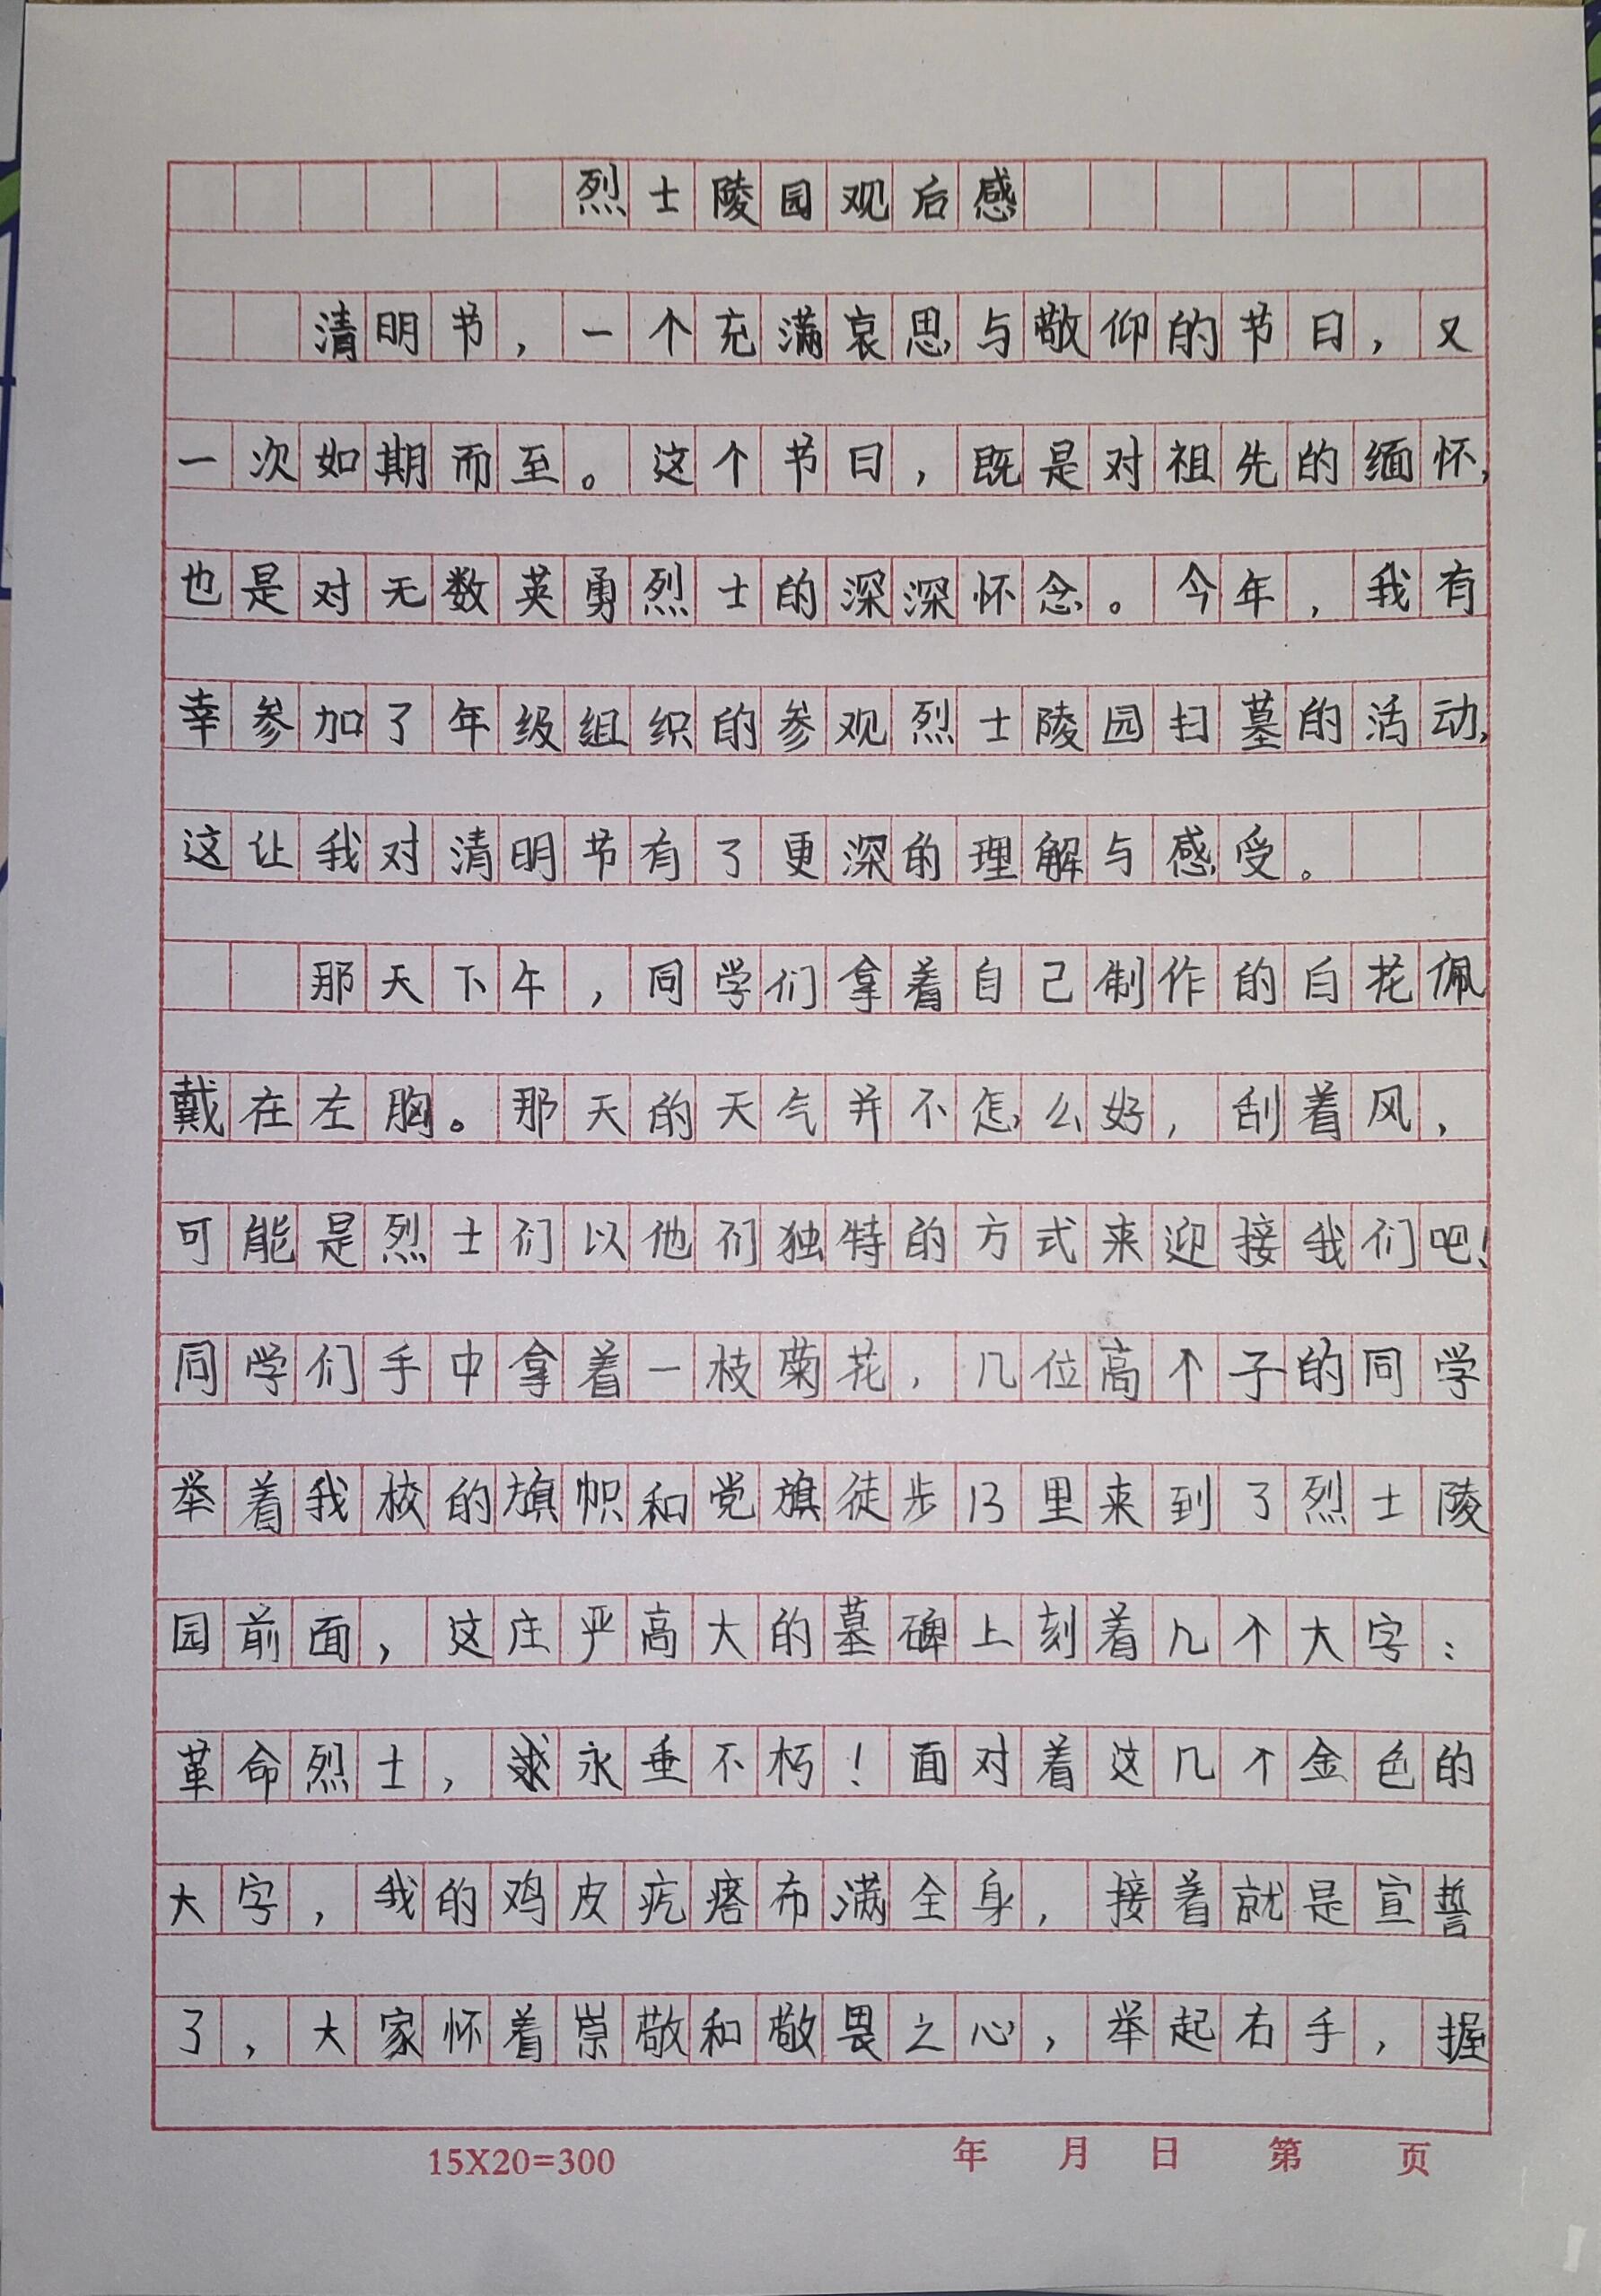 烈士陵园观后感
清明节，一个充满哀思与敬仰的节日，又
一次如期而至。这个节日，既是对祖先的缅怀，
也是对无数英勇烈士的深深怀念。今年，我有
幸参加了年级组织的参观烈士陵园扫墓的活动，
这让我对清明节有了更深的理解与感受。
那天下午，同学们拿着自己制作的白花佩
戴在左胸。那天的天气并不怎么好，刮着风，
可能是烈士们以他们独特的方式来迎接我们吧！
同学们手中拿着一枝菊花，几位高个子的同学
举着我校的旗帜和党旗徒步13里来到了烈士陵
园前面，这庄严高大的墓碑上刻着几个大字：
革命烈士，永垂不朽！面对着这几个金色的
大字，我的鸡皮疙瘩布满全身，接着就是宣誓
了，大家怀着崇敬和敬畏之心，举起右手，握
15X20=300 年 月 日 第 页